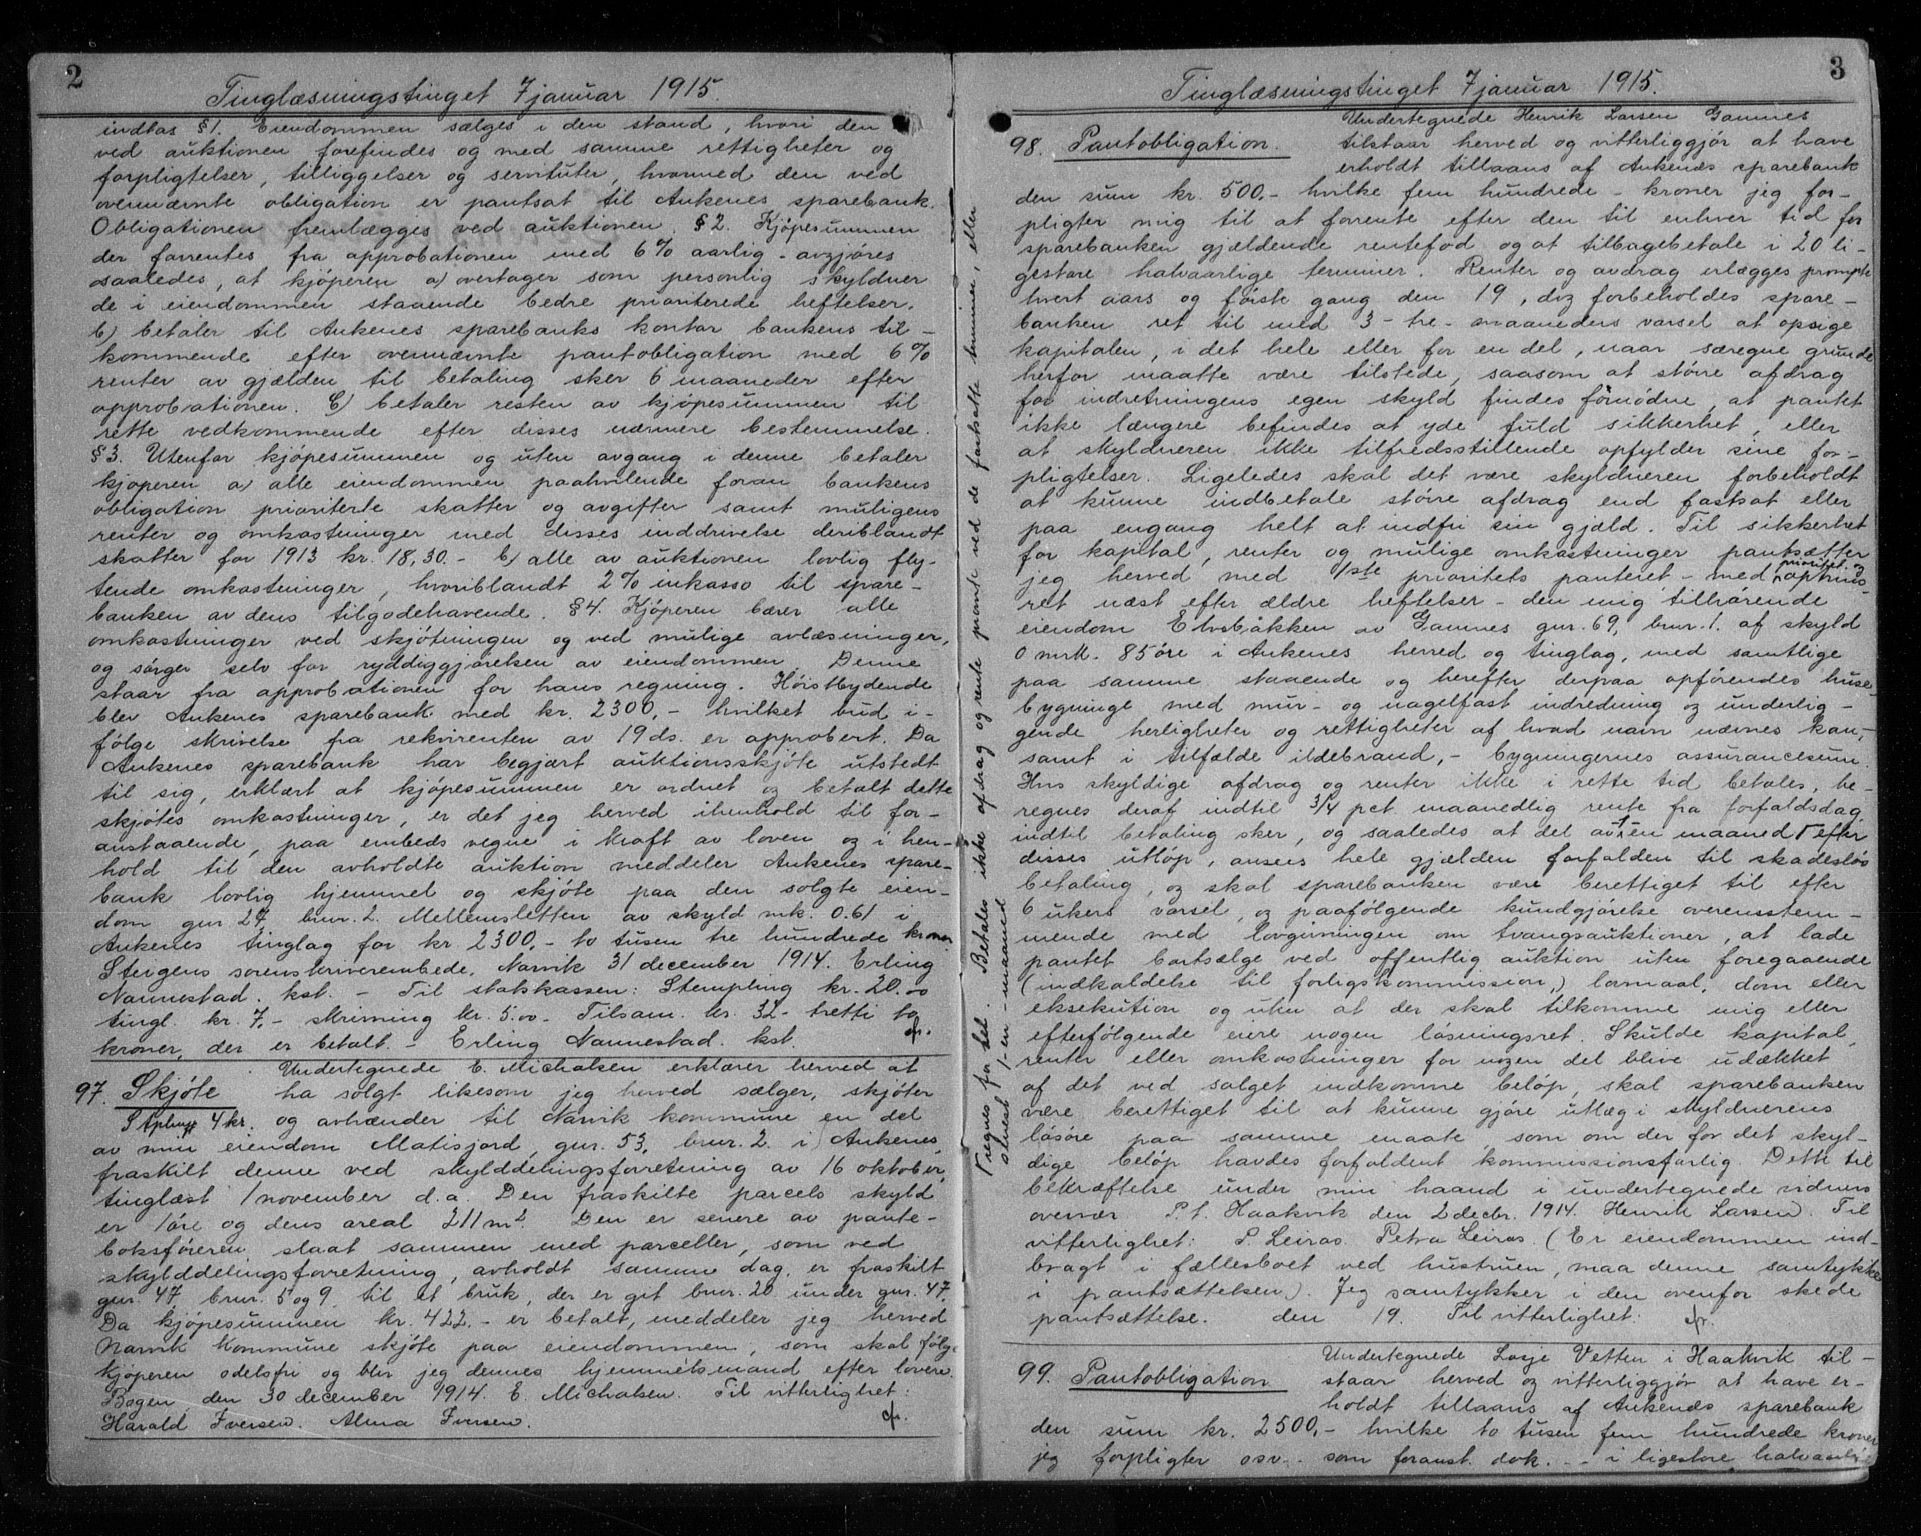 2
Tinglæsningstinget 7 januar 1915.
indtas §1. Eiendommen sælges i den stand, hvori den
ved auktionen forefindes og med samme rettigheter og
forpligtelser, tilliggelser og servituter, hvormed den ved
overnævnte obligation er pantsat til Ankenes sparebank.
Obligationen fremlægges ved auktionen. §2. Kjøpesummen
der forrentes fra approbationen med 6% aarlig - avgjøres
saaledes, at kjøperen a) overtager som personlig skyldner
de i eiendommen staaende bedre prioriterede heftelser.
b) betaler til Ankenes sparebanks kontor bankens til-
kommende efter overnævnte pantobligation med 6%
renter av gjælden til betaling sker 6 maaneder efter
approbationen. C) betaler resten av kjøpesummen til
rette vedkommende efter disses nærmere bestemmelse.
§3. Utenfor kjøpesummen og uten avgang i denne betaler
kjøperen a) alle eiendommen paahvilende foran bankens
obligation prioriterte skatter og avgifter samt muligens
renter og omkostninger med disses inddrivelse deriblandt
skatter for 1913 kr. 18,30.- b) alle av auktionen lovlig fly-
tende omkostninger, hvoriblandt 2% inkasso til spare-
banken av dens tilgodehavende. §4. Kjøperen bærer alle
omkostninger ved skjøtningen og ved mulige avlæsninger,
og sørger selv for ryddiggjørelsen av eiendommen. Denne
staar fra approbationen for hans regning. Høistbydende
blev Ankenes sparebank med kr. 2300,- hvilket bud i-
følge skrivelse fra rekvirenten av 19 ds. er approbert. Da
Ankenes sparebank har begjært auktionsskjøte utstedt
til sig, erklært at kjøpesummen er ordnet og betalt dette
skjøtes omkostninger, er det jeg herved ihenhold til for-
anstaaende, paa embeds vegne i kraft av loven og i hen-
hold til den avholdte auktion meddeler Ankenes spare-
bank lovlig hjemmel og skjøte paa den solgte eien-
dom gnr 27, brnr. 2. Mellemsletten av skyld mk. 0.61 i
Ankenes tinglag for kr 2300,- to tusen tre hundrede kroner
Steigens sorenskriverembede, Narvik 31 december 1914. Erling
Nannestad. kst. - Til statskassen: Stempling kr. 20.00
tingl. kr. 7.- skrivning kr. 5.00- Tilsam. kr. 32- tretti to
kroner, der er betalt. - Erling Nannestad. kst.
Undertegnede E. Michalsen erklærer herved at
97. Skjøte ha solgt likesom jeg herved sælger, skjøter
4 kr. og avhænder til Narvik kommune en del
av min eiendom Matisjord, gnr. 53, brnr. 2. i Ankenes,
fraskilt denne ved skylddelingsforretning av 16 oktober,
tinglæst 1 november d.a. Den fraskilte parcels skyld
er 1 øre og dens areal 211 m². Den er senere av pante-
boksføreren slaat sammen med parceller, som ved
skylddelingsforretning, avholdt samme dag, er fraskilt
gnr. 47 brnr. 5 og 9, til et bruk, der er git brnr. 20 under gnr. 47.
Da kjøpesummen kr. 422.- er betalt, meddeler jeg herved
Narvik kommune skjøte paa eiendommen, som skal følge
kjøperen odelsfri og blir jeg dennes hjemmelsmand efter lovene.
Bogen den 30 december 1914. E. Michalsen. Til vitterlighet:
Harald Iversen. Alma Iversen.
3
Tinglæsningstinget 7 januar 1915.
Undertegnede Henrik Larsen Gamnes
98. Pantobligation. tilstaar herved og vitterliggjør at have
erholdt tillaans af Ankenæs sparebank
den sum kr. 500,- hvilke fem hundrede - kroner jeg for-
pligter mig til at forrente efter den til enhver tid for
sparebanken gjældende rentefod og at tilbagebetale i 20 li-
gestore halvaarlige terminer. Renter og avdrag erlægges prompte
hvert aars og første gang den 19 , dog forbeholdes spare-
banken ret til med 3 - tre - maaneders varsel at opsige
kapitalen, i det hele eller for en del, naar særegne grunde
herfor maatte være tilstede, saasom at større afdrag
for indretningens egen skyld findes fornødne, at pantet
ikke længere befindes at yde fuld sikkerhet, eller
at skyldneren ikke tilfredsstillende opfylder sine for-
pligtelser. Ligeledes skal det være skyldneren forbeholdt
at kunne indbetale større afdrag end fastsat eller
paa engang helt at indfri sin gjæld. Til sikkerhet
for kapital, renter og mulige omkostninger pantsætter
jeg herved med 1/ste prioritets panteret - med prioritet og opryknings-
ret næst efter ældre heftelser - den mig tilhørende
eiendom Elvebakken av Gamnes gnr. 69, brnr. 1. af skyld
0 mrk. 85 øre i Ankenes herred og tinglag, med samtlige
paa samme staaende og herefter derpaa opførendes huse-
bygninge med mur- og nagelfast indredning og underlig-
gende herligheter og rettigheter af hvad navn nævnes kan,-
samt i tilfælde ildebrand,- bygningernes assurancesum.
Hvis skyldige afdrag og renter ikke i rette tid betales, be-
regnes deraf indtil 3/4 pct. maanedlig rente fra forfaldsdag
indtil betaling sker, og saaledes at del av 1 en maaned Γ efter
disses utløp, ansees hele gjælden forfalden til skadesløs
betaling, og skal sparebanken være berettiget til efter
6 ukers varsel, og paafølgende kundgjørelse overensstem-
mende med lovgivningen om tvangsauktioner, at lade
pantet bortsælge ved offentlig auktion uten foregaaende
(indkaldelse til forligskommission,) lovmaal, dom eller
eksekution og uten at der skal tilkomme mig eller
efterfølgende eiere nogen løsningsret. Skulde kapital,
renter eller omkostninger for nogen del blive udækket
af det ved salget indkomne beløp, skal sparebanken
være berettiget til at kunne gjøre utlæg i skyldnerens
løsøre paa samme maate, som om der for det skyl-
dige beløp havdes forfaldent kommissionsforlig. Dette til
bekræftelse under min haand i undertegnede vidners
overvær. P.t. Haakvik den 2 decbr. 1914. Henrik Larsen. Til
vitterlighet: P. Leiros. Petra Leiros. (Er eiendommen ind-
bragt i fællesboet ved hustruen, maa denne samtykke
i pantsættelsen). Jeg samtykker i den ovenfor skede
pantsættelse. den 19. Til vitterlighet:
Γ regnes for hel. Betales ikke afdrag og rente promte ved de fastsatte terminer, eller
senest 1-en-maaned
Undertegnede Losje Vetten i Haakvik til-
99. Pantobligation staar herved og vitterliggjør at have er-
holdt tillaans af Ankenæs sparebank
den sum kr. 2500,- hvilke to tusen fem hundrede kroner
jeg forpligter osv. som foranst. dok. - i ligestore halvaarli-